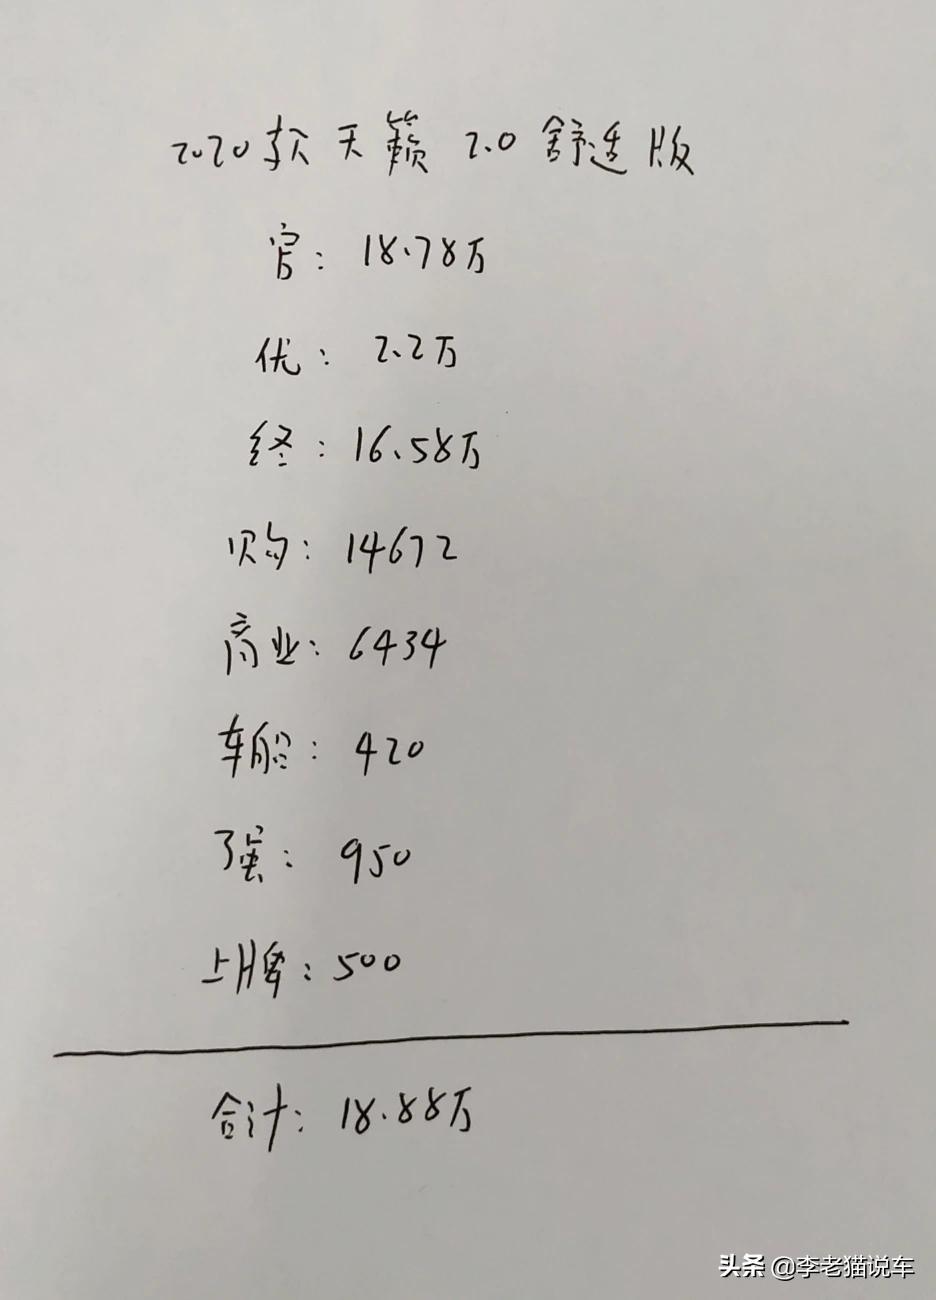 2020款天籁 2.0 舒适版
官：18.78万
优：2.2万
终：16.58万
购：14672
商业：6434
车船：420
强：950
上牌：500
合计：18.88万
头条 @李老猫说车